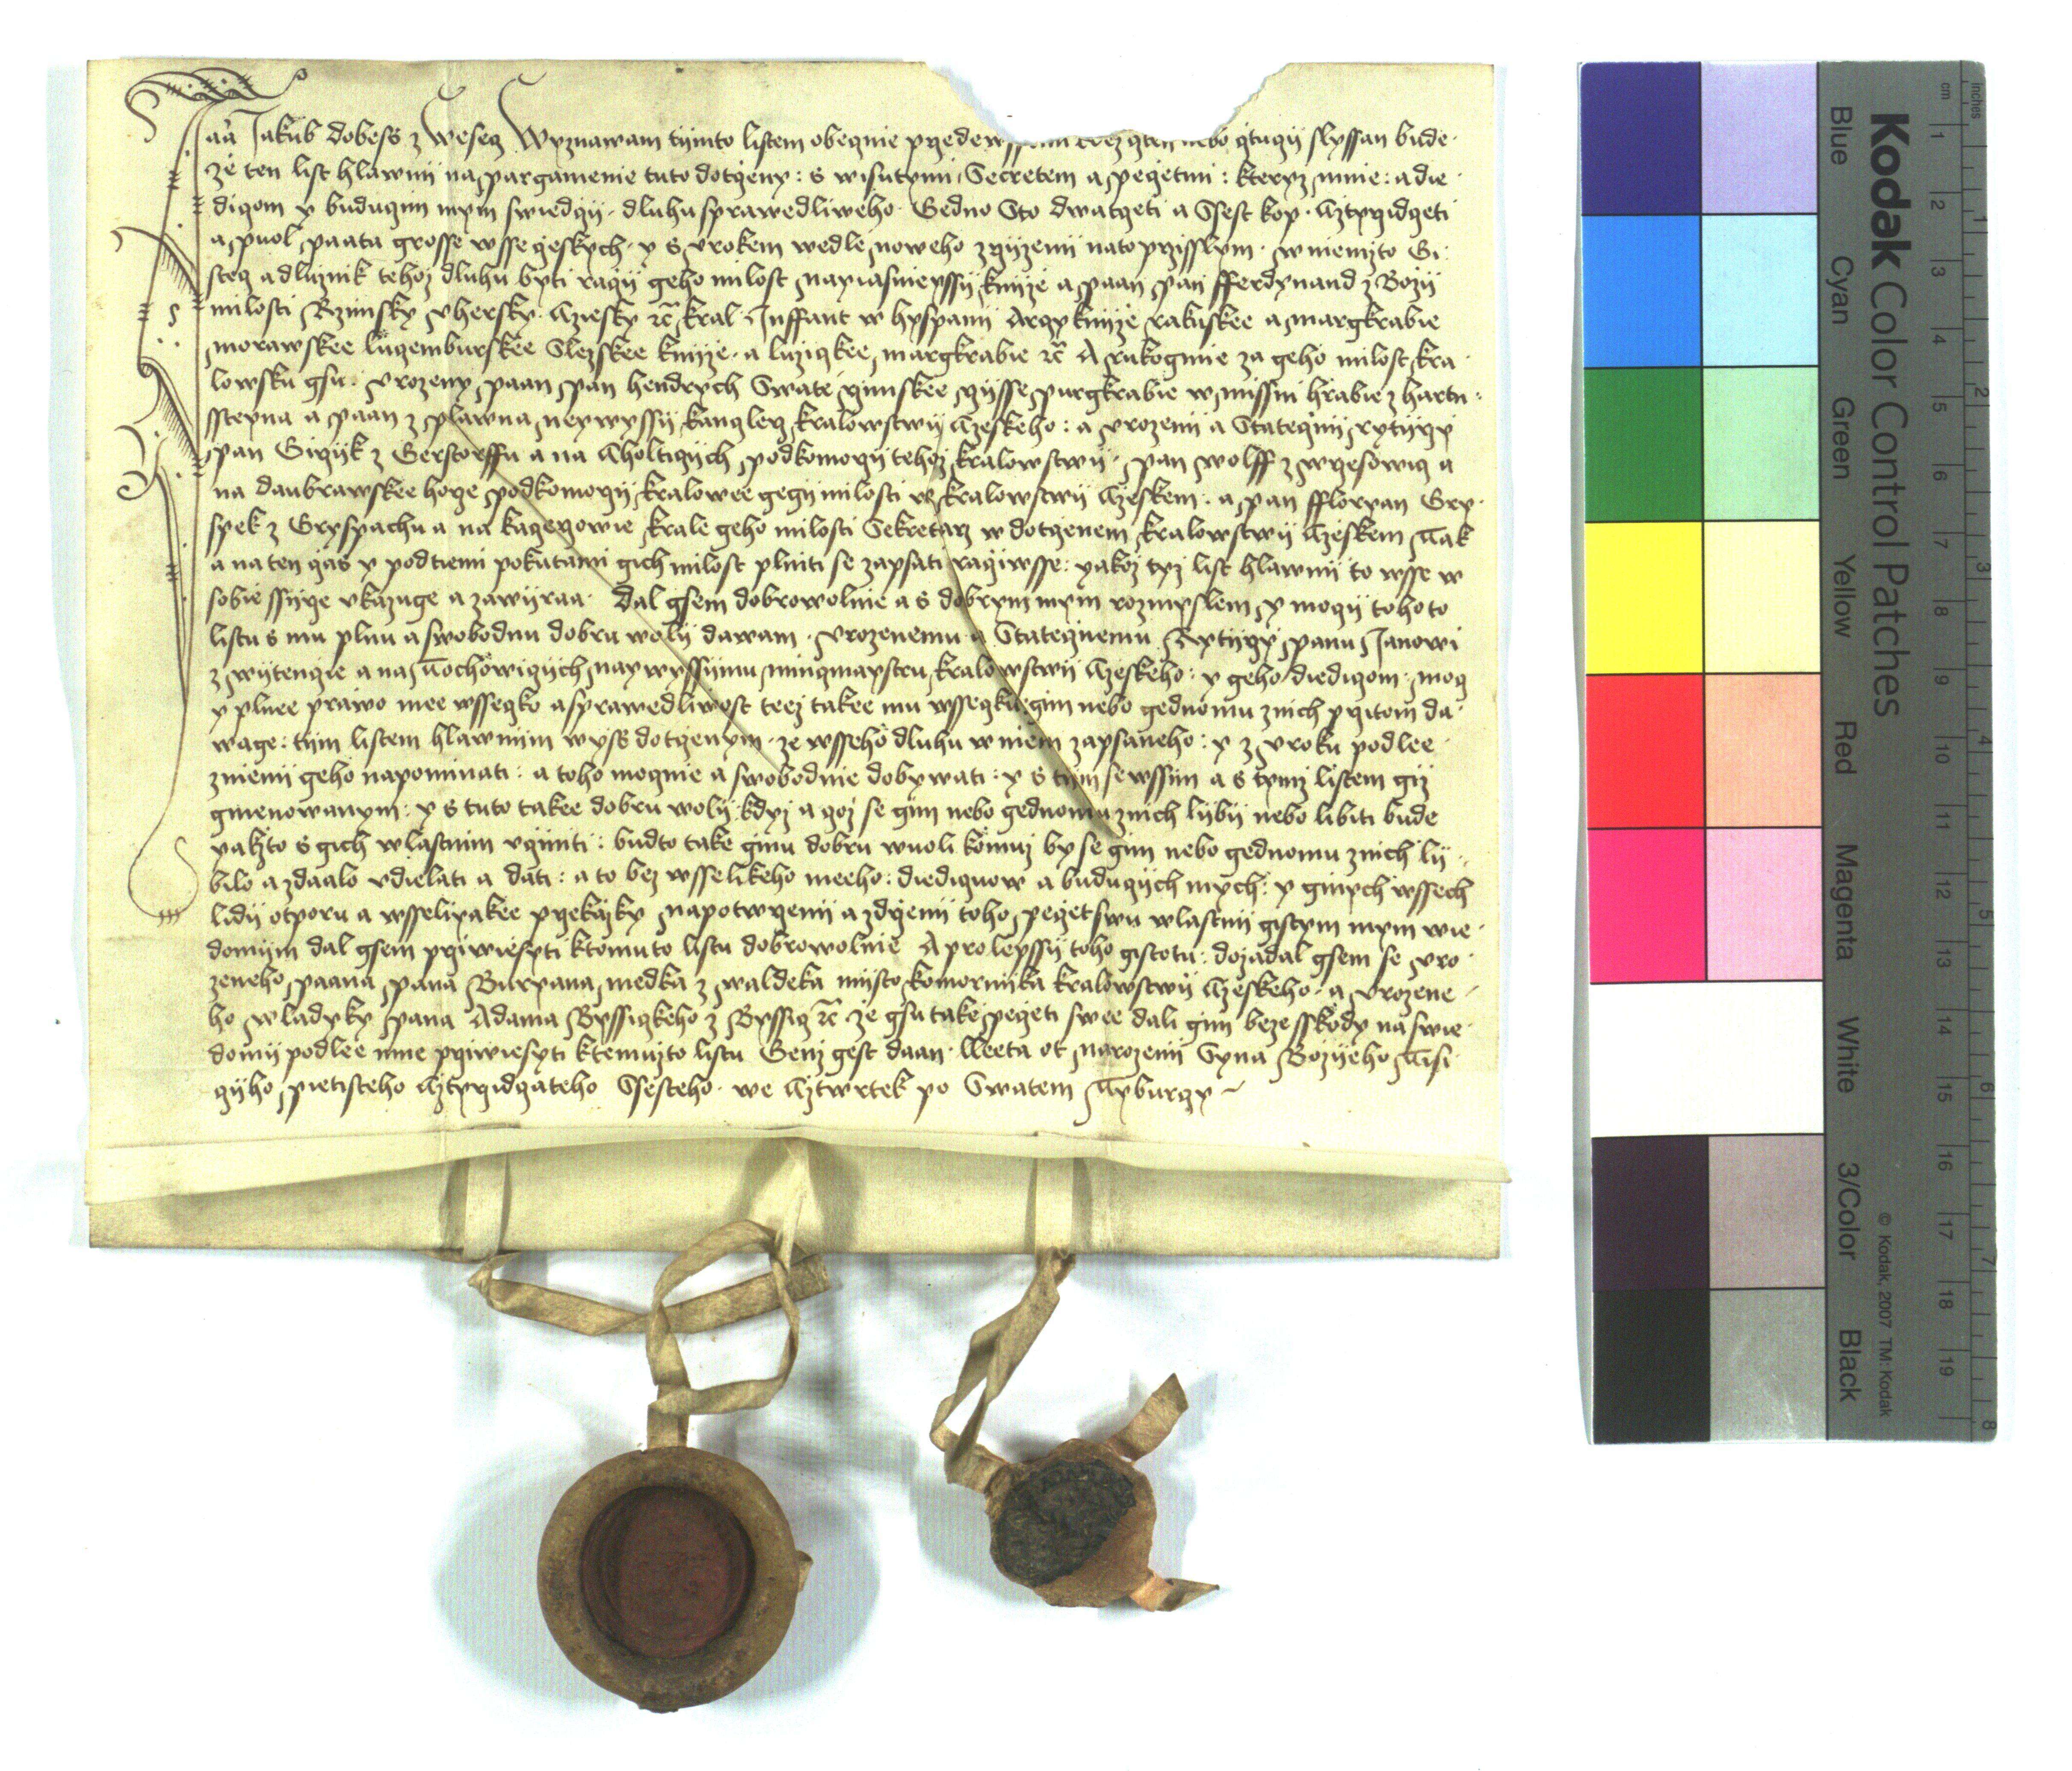 Jaa Jakub dobess z Weseg Wyznawam tijmto listem obegnie przedewssemi cztucz nebo gtucy slyssan bude
ze ten list hlawnij na pargamenie tuto dotczeny: s wisutymi Secretem a peczetmi: kteryz mnie: a die
diczom y buduczim mym swiedczij dluhu sprawedliweho Gedno Sto dwatczeti a Ssest kop Cztyrzidczeti
a puol paata grosse wsse czeskych y s vrokem wedle noweho zrzijzenij nato przisslym w niemzto Gi
stecz a dluznik tehoz dluhu byti raczij geho milost nayiasnieyssij knijze a paan pan fferdynand z Bozij
milosti Rzimsky Vhersky Cziesky etc kral Inffant w hyspanij Arczy knijze rakuskee a margkrabie
morawskee luczemburskee Slezskee knijze a luziczkee margkrabie etc A rukogmie za geho milost kra
lowsku gsu vrozeny paan pan hendrych Swate rzimskee rzijsse purgkrabie w missni hrabie z hartn
ssteyna a paan z plawna neywyssij kanczlerz kralowstwij Czeskeho: a vrozenij a Statecznij rytijrzy
pan Girzijk z Gerstorffu a na Cholticzijch podkomorzij tehoz kralowstwij pan wolff z wrzesowicz a
na daubrawskee horze podkomorzij kralowee gegij milosti w kralowstwij Czeskem a pan ffloryan Gry
spek z Gryspachu a na kaczerowie krale geho milosti Sekretarz w dotczenem kralowstwij Czeskem Tak
a na ten czas y podtiemi pokutami gich milost plniti se zapsati raczjwsse: yakoz tyz list hlawnij to wsse w
sobie ssijrze vkazuge a zawijraa Dal gsem dobrowolnie a s dobrym mym rozmyslem y moczij tohoto
listu s mu plnu a swobodnu dobru wolij dawam vrozenemu a Statecznemu Rytijrzy panu Janowi
z wijtencze a na Tochowiczijch naywyssijmu mincmaystru kralowstwij Czeskeho: y geho diediczom mocz
y plnee prawo mee wsseczko a sprawedliwost teez takee mu wsseczku gim nebo gednomu z nich przitom da
wage: tijm listem hlawnijm wyss dotczenym ze wsseho dluhu w niem zapsaneho: y z vroku podlee
znienij geho napominati: a toho mocznie a swobodnie dobywati: y s tijm se wssim a s tymz listem giz
gmenowanym: y s tuto takee dobru wolij kdyz a goz se gim nebo gednomu z nich lijbij nebo libiti bude
yakzto s gich wlastnim vcziniti: budto take ginu dobru wuoli komuz by se gim nebo gednomu z nich lij
bilo a zdaalo vdielati a dati: a to bez wsselikeho meeho: diedicznow a buduczijch mych: y ginych wssech
lidij otporu a wsselijakee przekazky napotwrzenij a zdrzenij toho peczet swu wlastnij gistym mym wie
domijm dal gsem prziwiesyti ktomuto listu dobrowolnie A pro lepssij toho gistotu: dozadal gsem se vro
zeneho paana pana Buryana medka z waldeka mijsto komornijka kralowstwij Czeskeho a vrozene
ho wladyky pana Adama Ryssiczkeho z Ryssicz etc ze gsu take peczeti swee dali gim beze sskody na swie
domij podlee mne prziwiesyti ktemuzto listu Genz gest daan Leeta ot narozenij Syna Bozijeho Tisi
czijho pietisteho Cztyrzidczateho Ssesteho we Cztwrtek po Swatem Tyburczy
Kodak Color Control Patches
Blue Cyan Green Yellow Red Magenta White 3/Color Black
© Kodak, 2007 TM: Kodak
cm 1 2 3 4 5 6 7 8 9 10 11 12 13 14 15 16 17 18 19
inches 1 2 3 4 5 6 7 8